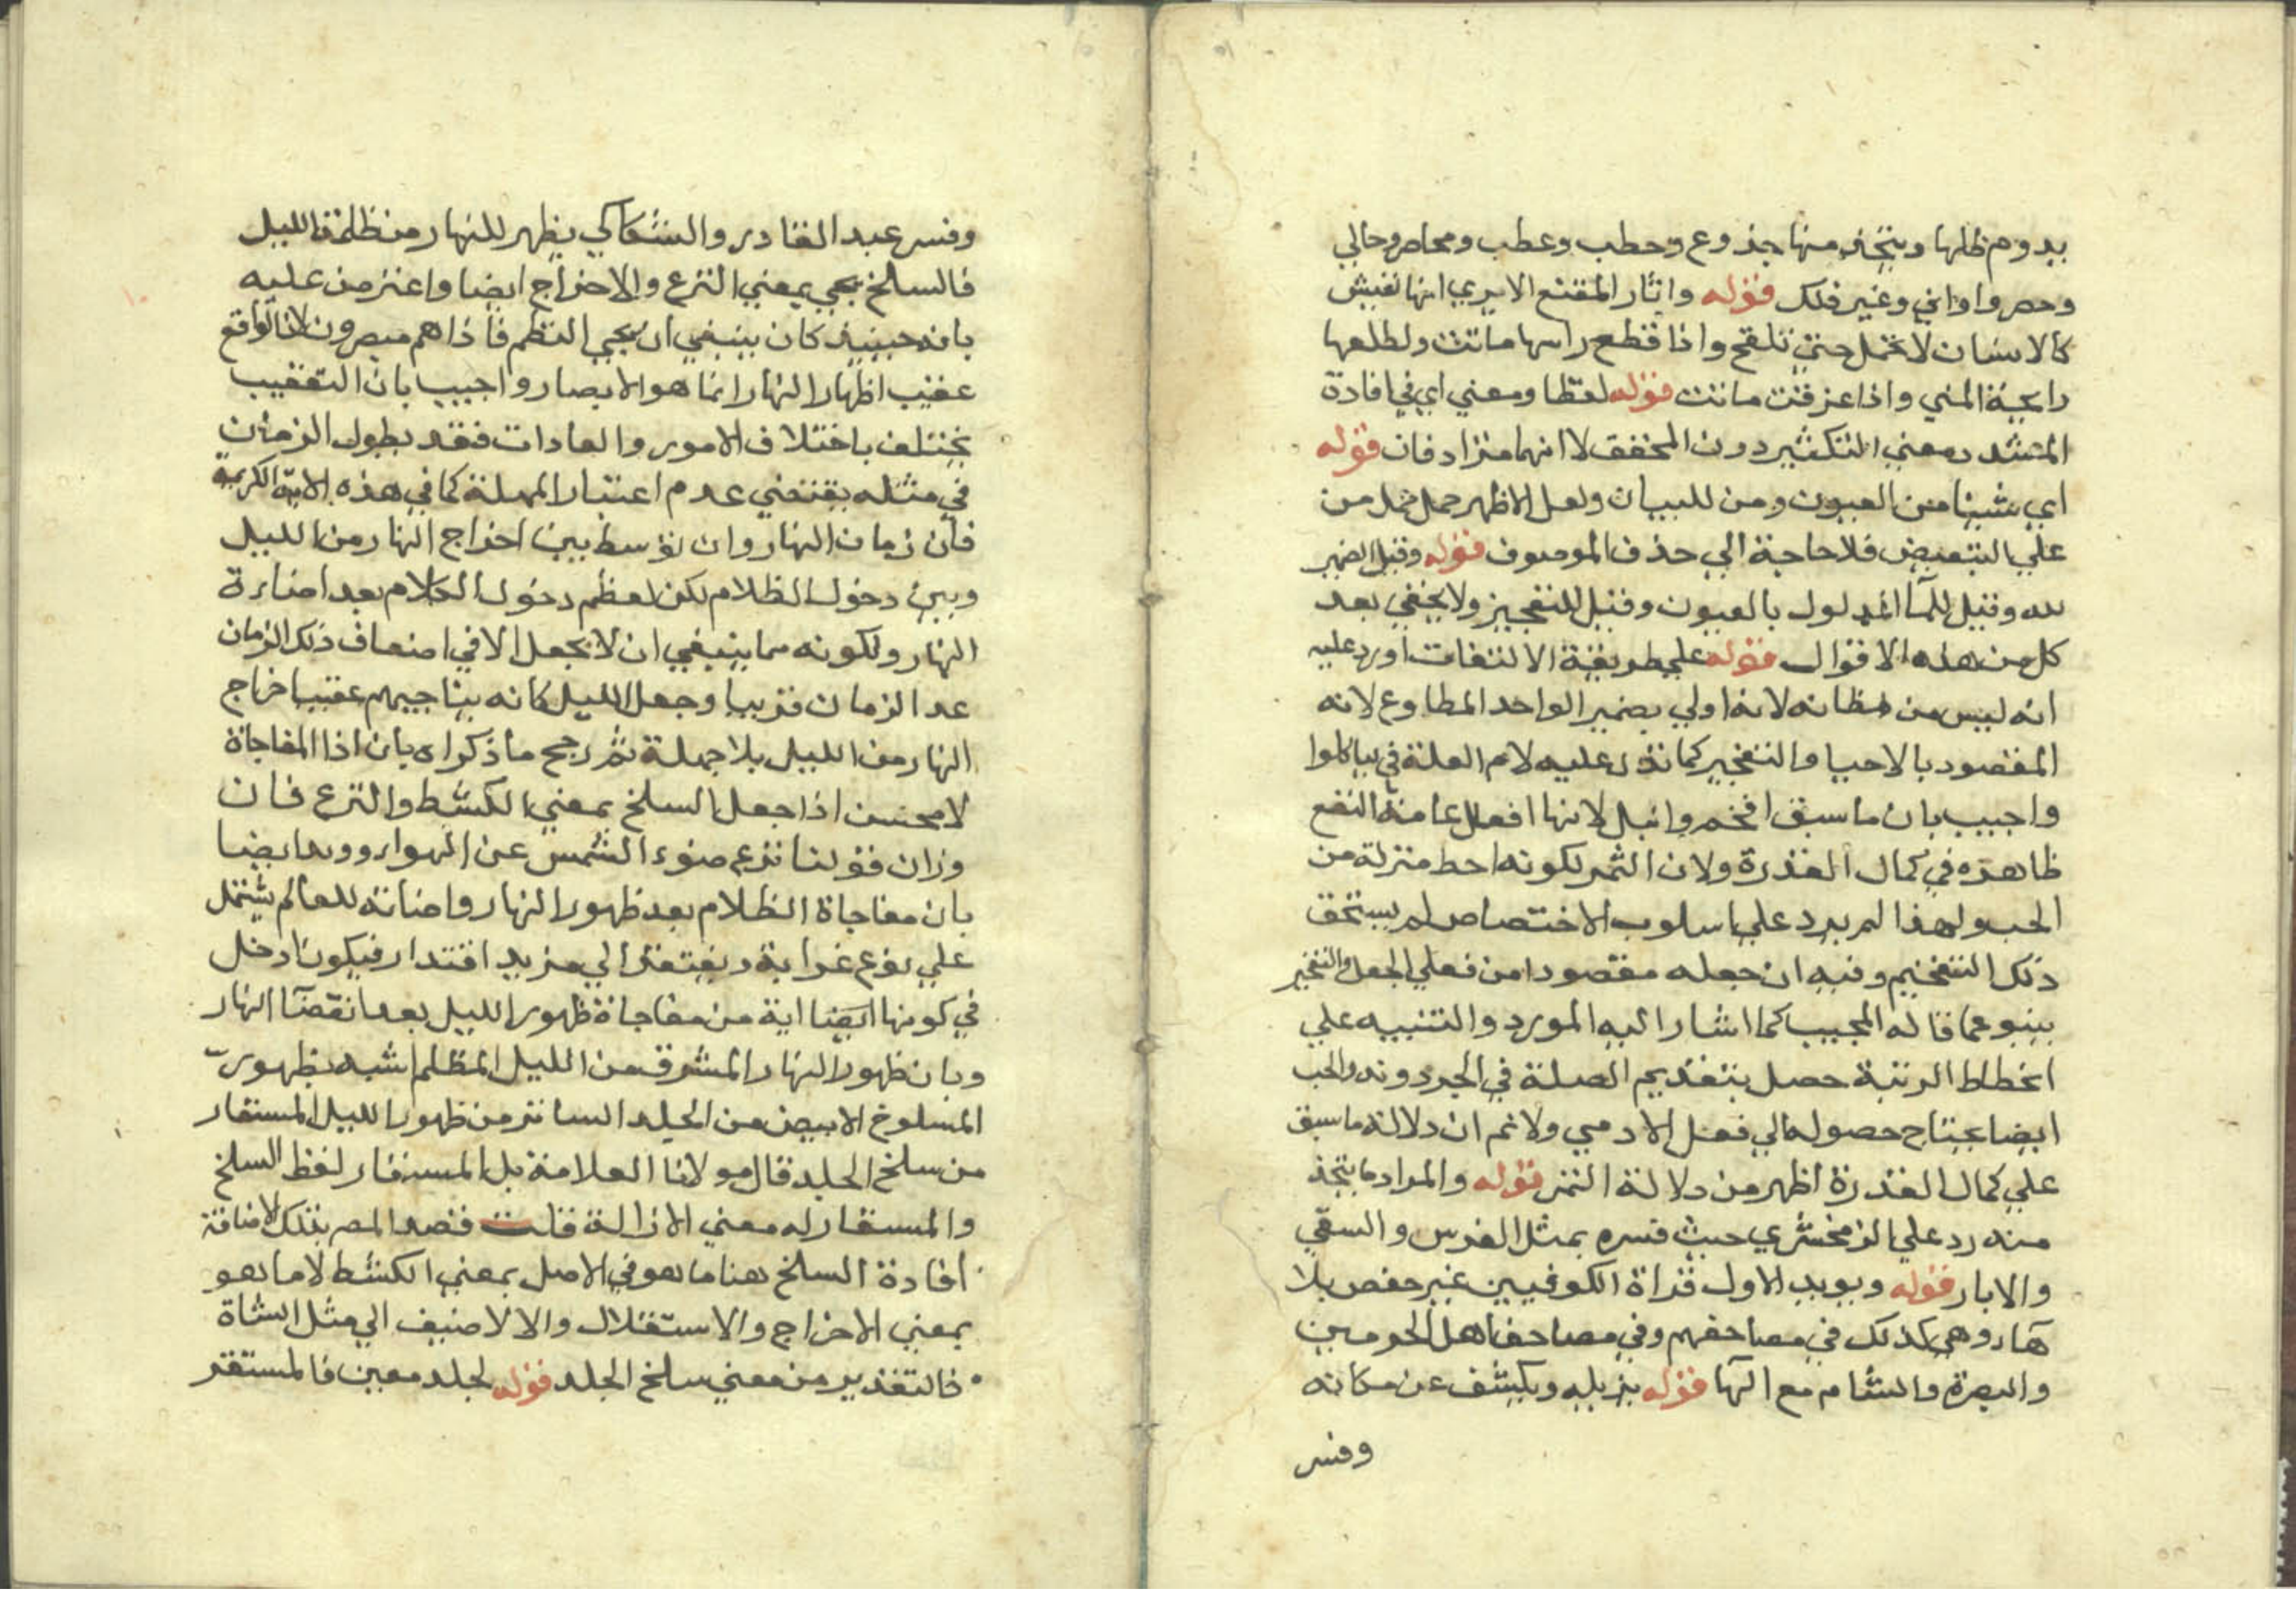 يدوم ظلها ويتخذ منها جذوع وحطب وعطب ومحاصر وحالي
وحصر واواني وغير ذلك قوله واثار المقنع الابري انها تغيش
كالانسان لا تحمل حتي تلقح واذا قطع راسها ماتت ولطلعها
رايحة المني واذا عزقت ماتت قوله لفظا ومعني اي في افادة
المتشدد معني التكثير دون المخفف لا انهما مترادفان قوله
اي شييا من العيون ومن للبيان ولعل الاظهر حمل من
علي التبعيض فلا حاجة الي حذف الموصوف قوله وقيل الضمير
لله وقيل للمآ المدلول بالعيون وقيل للتفجير ولا يخفي بعد
كل من هذه الاقوال قوله علي طريقة الالتفات اورد عليه
انه ليس من مظانه لانه اولي بضمير الواحد المطاوع لانه
المقصود بالاحيا والتفجير كما تدل عليه لام العلة في لياكلوا
واجيب بان ما سبق افخم وانبل لانها افعال عامة النفع
ظاهره في كمال القدرة ولان الثمر لكونه احط منزلة من
الحب ولهذا لم يرد علي اسلوب الاختصاص لم يستحق
ذلك التفخيم وفيه ان جعله مقصودا من فعلي الجعل والتفجير
ينبو عما قاله المجيب كما اشار اليه المورد والتنبيه علي
انحطاط الرتبة حصل بتقديم الصلة في الحب دونه والحب
ايضا يحتاج حصوله الي فعل الادمي ولا نم ان دلالة ما سبق
علي كمال القدرة اظهر من دلالة الثمر قوله والمراد ما يتخذ
منه رد علي الزمخشري حيث فسره بمثل الغرس والسقي
والابار قوله ويويد الاول قراة الكوفيين غير حفص بلا
هآء وهي كذلك في مصاحفهم وفي مصاحف اهل الحرمين
والبصرة والشام مع الهآ قوله يزيله ويكشف عن مكانه
وفسر
وفسر عبد القادر والسكاكي يظهر للنهار من ظلمة الليل
فالسلخ يجي بمعني النزع والاخراج ايضا واعترض عليه
بانه حينيذ كان ينبغي ان يجي النظم فاذا هم مبصرون لان الواقع
عقيب اظهار النهار انما هو الابصار واجيب بان التعقيب
يختلف باختلاف الامور والعادات فقد يطول الزمان
في مثله يقتضي عدم اعتبار المهلة كما في هذه الاية الكريمة
فان زمان النهار وان توسط بين اخراج النهار من الليل
وبين دخول الظلام لكن لعظم دخول الظلام بعد اضاءة
النهار ولكونه مما ينبغي ان لا يجعل الا في اضعاف ذلك الزمان
عد الزمان قريبا وجعل الليل كانه يفاجيهم عقيب اخراج
النهار من الليل بلا مهلة ثم رجح ما ذكراه بان اذا المفاجاة
لا محسن اذا جعل السلخ بمعني الكشط والنزع فان
وزان قولنا نزع ضوء الشمس عن الهواء ورد ايضا
بان مفاجاة الظلام بعد ظهور النهار واضاته للعالم يشتمل
علي نوع غرابة ويفتقر الي مزيد اقتدار فيكون ادخل
في كونها ايضا اية من مفاجاة ظهور الليل بعد انقضآ النهار
وبان ظهور النهار المشرق من الليل المظلم اشبه بظهور
المسلوخ الابيض من الجلد الساتر من ظهور الليل المستعار
من سلخ الجلد قال مولانا العلامة بل المستعار لفظ السلخ
والمستعار له معني الازالة قلت قصد المص بتلك الاضافة
افادة السلخ هنا ما هو في الاصل بمعني الكشط لا ما هو
بمعني الاخراج والاستقلال والا لاضيف الي مثل الشاة
فالتقدير من معني سلخ الجلد قوله لجلد معين فالمستقر